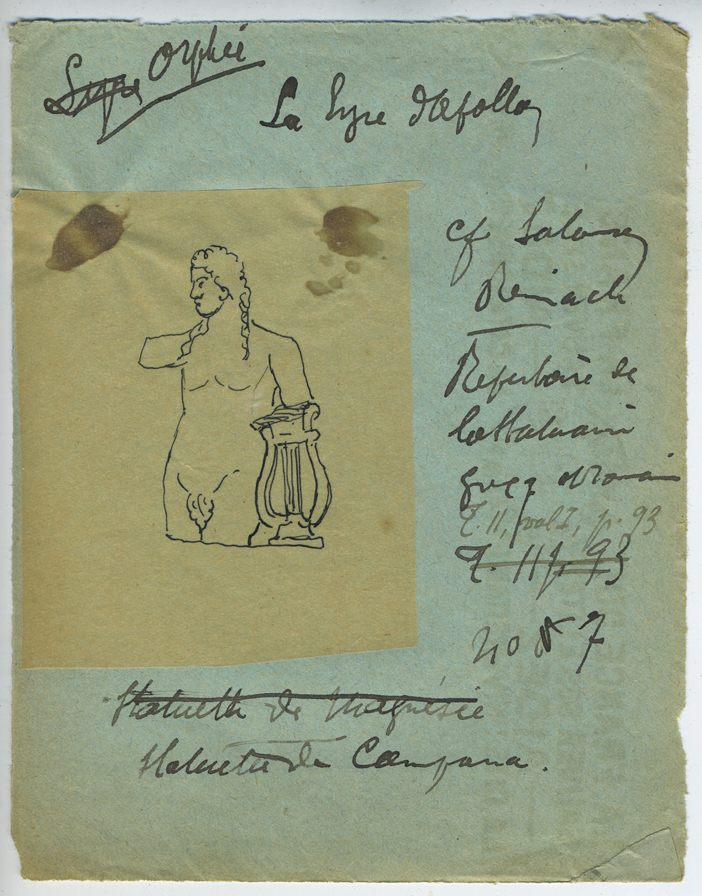 Lyre Orphée
La Lyre d'Apollon
cf Salomon
Reinach
Répertoire de
la Statuaire
grecq et Romain
T. II, vol I, p. 93
T. II p. 93
no 7
Statuette de Magnésie
Statuette de Campana.